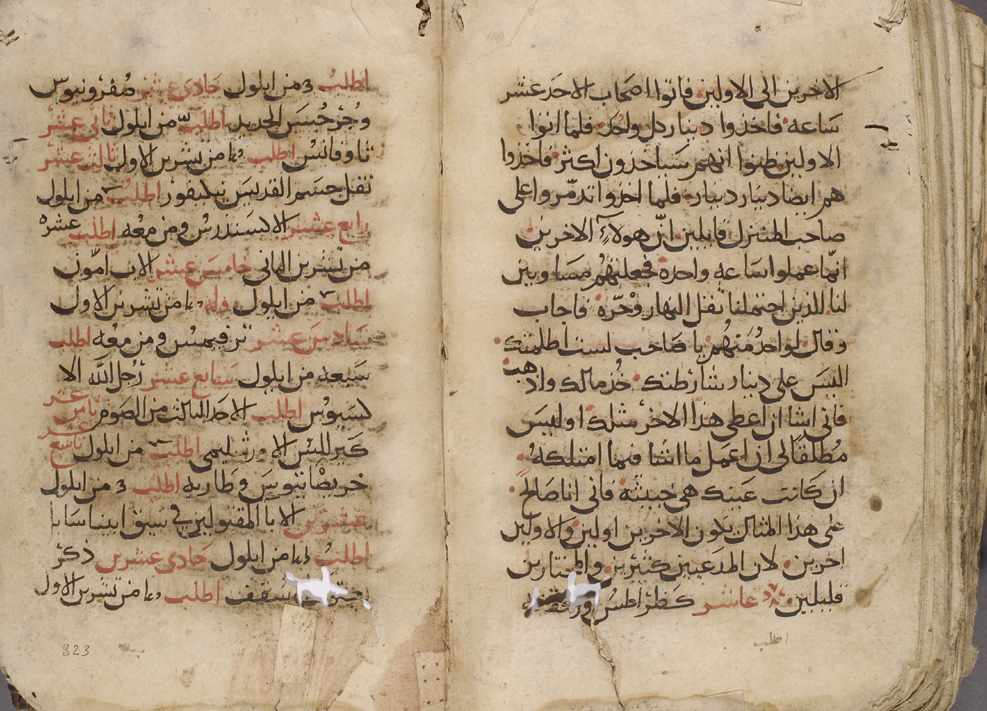 الاخرين الى الاولين فاتوا اصحاب الاحد عشر
ساعه فاخذوا دينار كل واحد فلما اتوا
الاولين ظنوا انهم سياخدون اكثر فاخذوا
هم ايضا دينار دينار فلما اخذوا تدمروا على
صاحب المنزل قايلين ان هولاء الاخرين
انما عملوا ساعه واحدة فجعلتهم مساويين
لنا الذين احتملنا ثقل النهار وحره فاجاب
وقال لواحد منهم يا صاحب لست اظلمك
اليس على دينار شارطتك خذ مالك واذهب
فاني اشا ان اعطي هذا الاخر مثلك اوليس
مطلقا لي ان اعمل ما اشا فيما امتلكه
ان كانت عينك هي خبيثة فاني انا صالح
على هذا المثال يكون الاخرين اولين والاولين
اخرين لان المدعيين كثيرين والمختارين
قليلين عاشر
اطلب
اطلب 3 من ايلول حادى عشر صفرونيوس
وجرجس الجديد اطلب من ايلول ثاني عشر
ثاوفانس اطلب من تشرين الاول ثالث عشر
نقل جسم القديس نيكيفور اطلب من ايلول
رابع عشر الاكسندرس ومن معه اطلب عشره
من تشرين الثاني خامس عشر الاب امون
اطلب من ايلول وله من تشرين الاول
سادس عشر تروفيمس ومن معه اطلب
سبعه من ايلول سابع عشر رجل الله الا
كسيوس اطلب الاحد الثالث من الصوم ثامن عشر
كيرللس الاورشليمي اطلب من ايلول تاسع عشر
خريصانتوس وطاريه اطلب 3 من ايلول
عشرين الابا المقتولين في سيق ابينا سابا
اطلب من ايلول حادى عشرين ذكر
اسقف اطلب من تشرين الاول
323